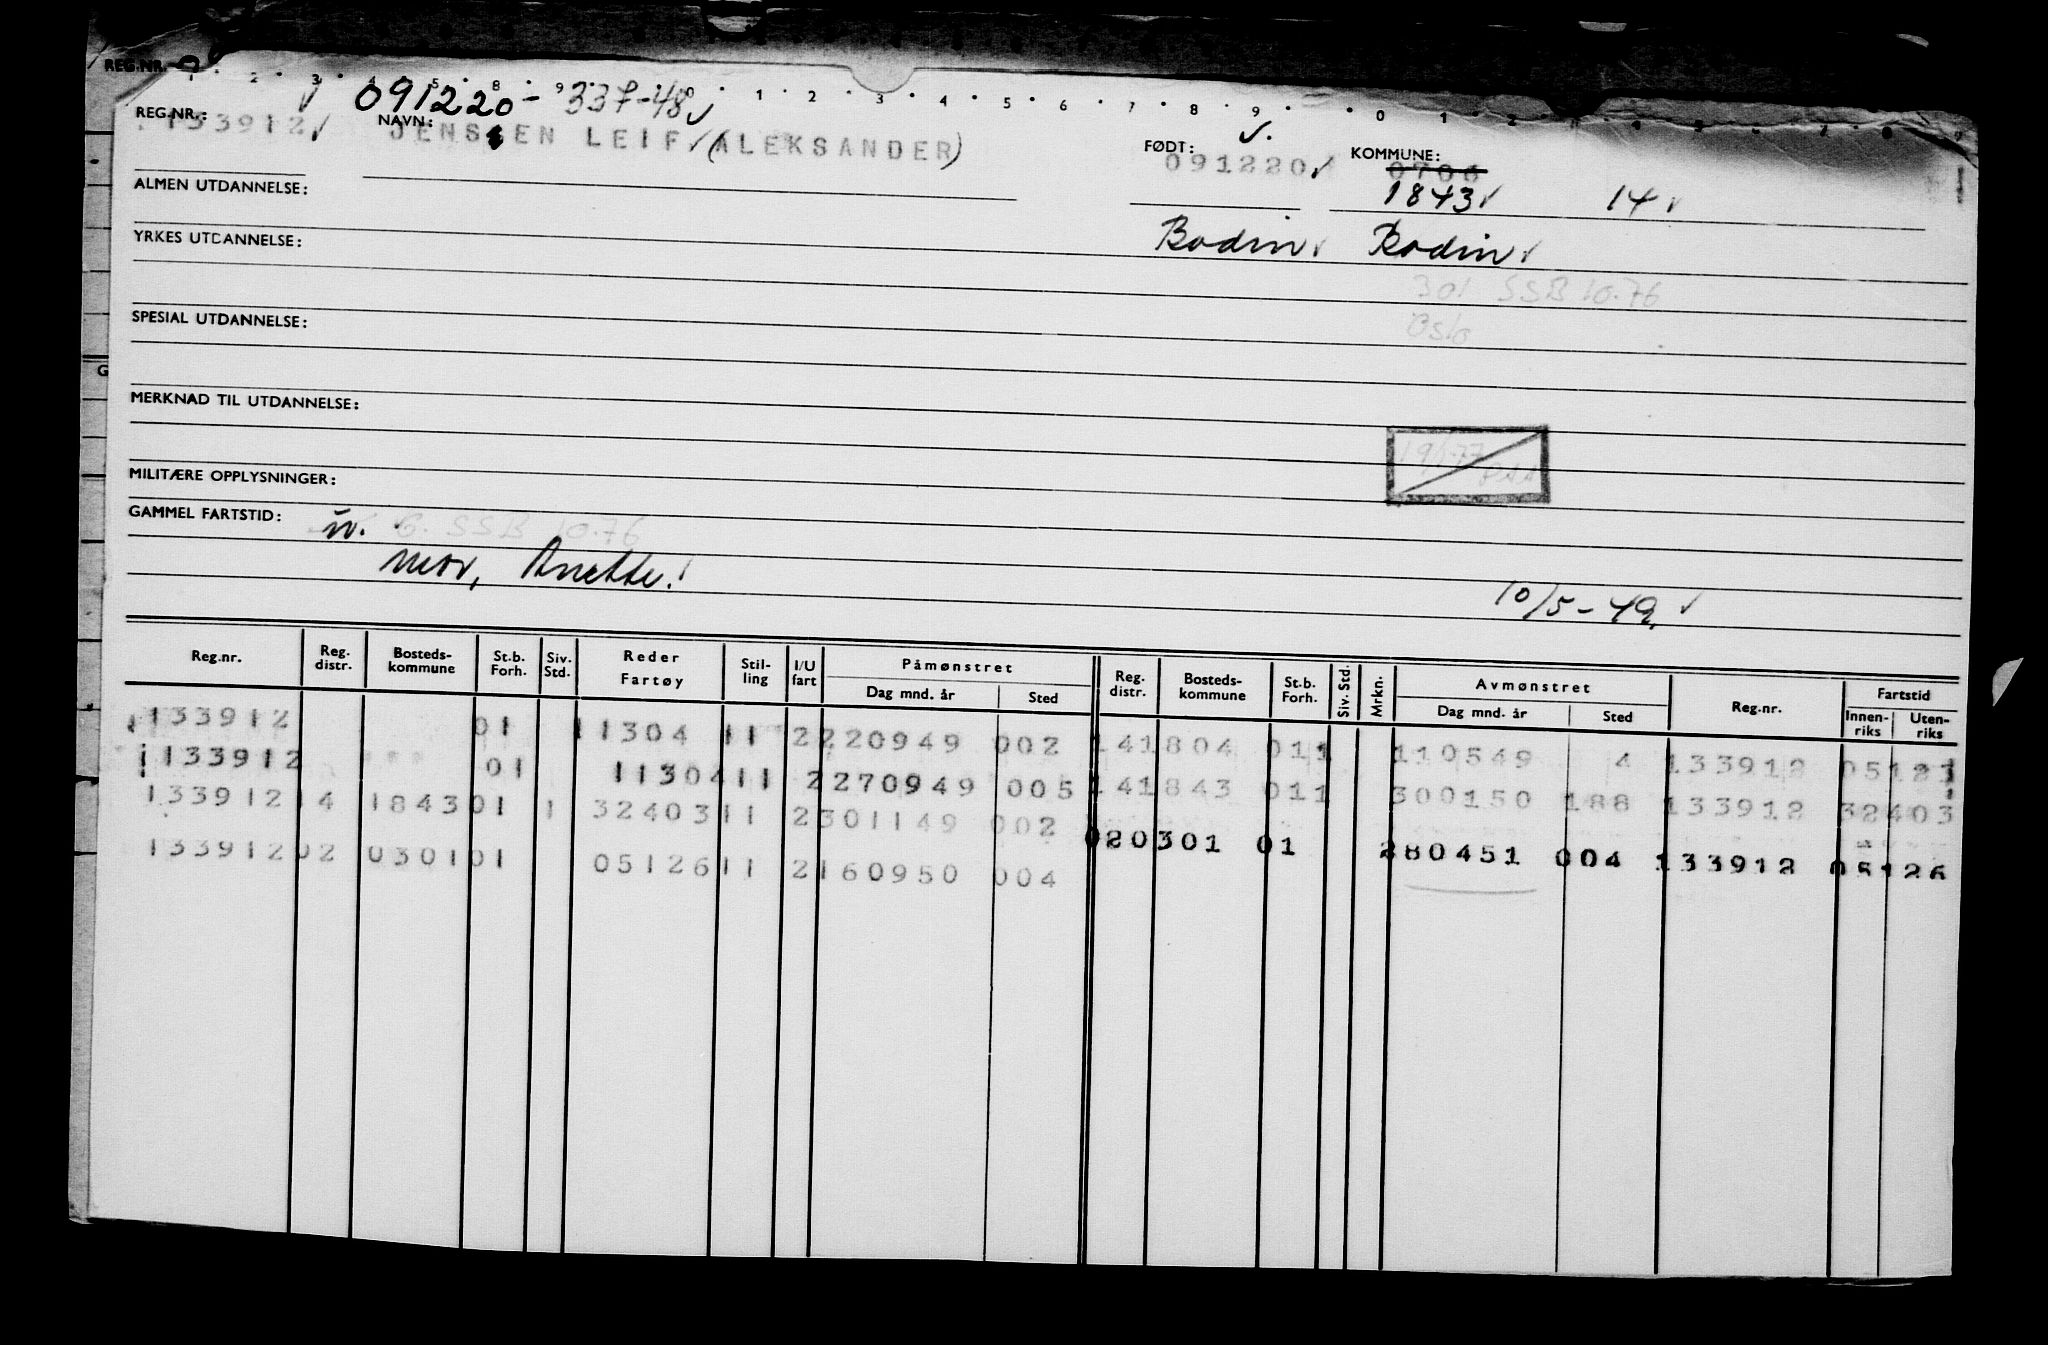 REG.NR.
REG.NR.: 133912 091220-337-48 NAVN: JENSEN LEIF (ALEKSANDER) FØDT: 091220 KOMMUNE: 0706
1843 14
ALMEN UTDANNELSE:
Bodin Bodin
YRKES UTDANNELSE:
301 SSB 10.76
Oslo
SPESIAL UTDANNELSE:
MERKNAD TIL UTDANNELSE:
19/1-77
MILITÆRE OPPLYSNINGER:
GAMMEL FARTSTID: SSB 10.76
mor, Anette.
10/5-49.
Reg.nr. Reg. distr. Bosteds-kommune St.b. Forh. Siv. Std. Reder Fartøy Stil-ling I/U fart Påmønstret Dag mnd. år Sted Reg. distr. Bosteds-kommune St.b. Forh. Siv. Std. Mrkn. Avmønstret Dag mnd. år Sted Reg.nr. Fartstid Innen-riks Uten-riks
133912 01 11304 11 2 220949 002 141804 011 110549 4 133912 05123
133912 01 11304 11 2 270949 005 141843 011 300150 188 133912 32403
133912 14 1843 01 1 32403 11 2 301149 002 020301 01 280451 004 133912 05126
133912 02 0301 01 05126 11 2 160950 004